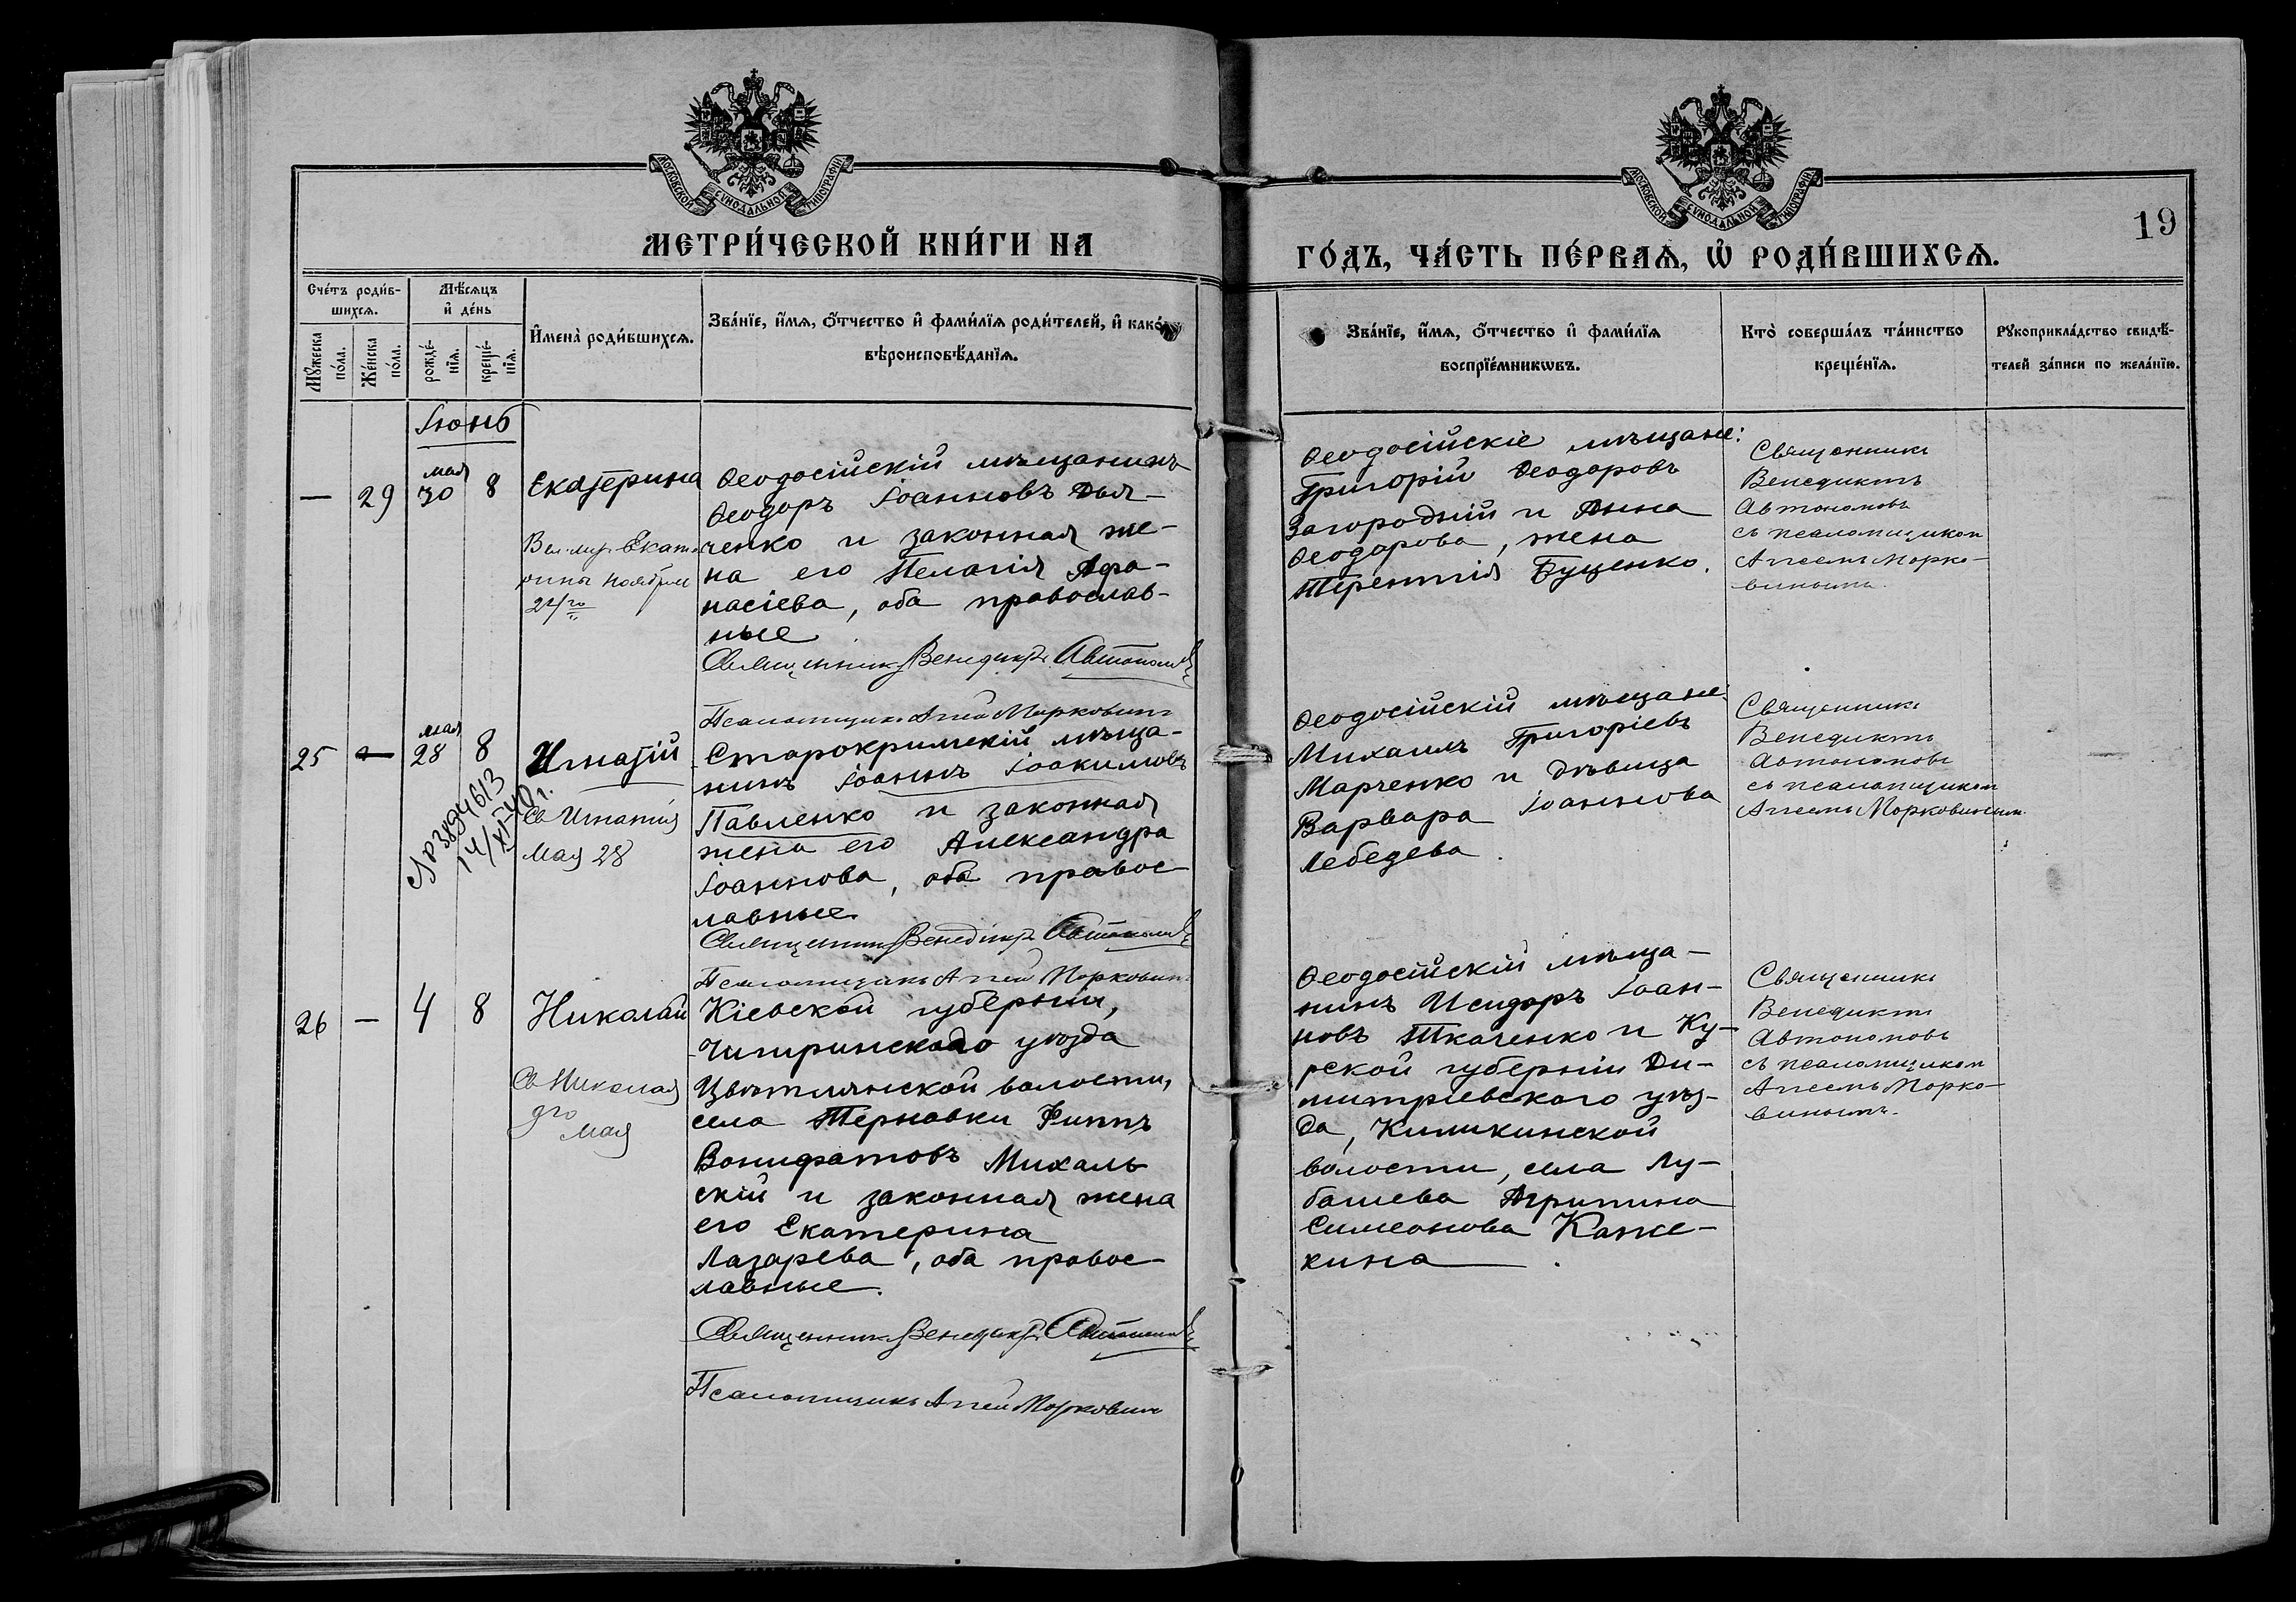 МОСКОВСКОЙ СѴНОДАЛЬНОЙ ТИПОГРАФІИ
МОСКОВСКОЙ СѴНОДАЛЬНОЙ ТИПОГРАФІИ
19
МЕТРИ́ЧЕСКОЙ КНИ́ГИ НА
ГО́ДЪ, ЧА́СТЬ ПЕ́РВАѦ, Ѽ РОДИ́ВШИХСѦ.
Сче́тъ роди́в-
шихсѧ.
Мѣ́сѧцъ
и҆ де́нь
Мꙋ́жеска
по́ла.
Же́нска
по́ла.
рожде́-
нїѧ.
креще́-
нїѧ.
И҆мена̀ роди́вшихсѧ.
Зва́нїе, и҆́мѧ, ѻ҆́тчество и҆ фами́лїѧ роди́телей, и҆ како́
вѣроисповѣ́данїѧ.
Зва́нїе, и҆́мѧ, ѻ҆́тчество и҆ фами́лїѧ
воспрїе́мникѡвъ.
Кто̀ соверша́лъ та́инство
креще́нїѧ.
Рꙋкоприкла́дство свидѣ́-
телей за́писи по жела́нїю.
Іюнь
— 29 мая 30 8
Екатерина
Вел. муч. Екате-
рины ноября
24го
Ѳеодосійскій мѣщанинъ
Ѳеодоръ Іоанновъ Дья-
ченко и законная же-
на его Пелагія Афа-
насіева, оба православ-
ные
Священникъ Венедиктъ Автономовъ
Псаломщикъ Аггей Морковинъ
Ѳеодосійскіе мѣщане:
Григорій Ѳеодоровъ
Загородній и Анна
Ѳеодорова, жена
Терентія Буценко.
Священникъ
Венедиктъ
Автономовъ
съ псаломщикомъ
Аггеемъ Морко-
винымъ.
25 — мая 28 8
Игнатій
Св. Игнатія
Мая 28
14/XI-40 г.
Старокрымскій мѣща-
нинъ Іоаннъ Іоакимовъ
Павленко и законная
жена его Александра
Іоаннова, оба правос-
лавные
Священникъ Венедиктъ Автономовъ
Псаломщикъ Аггей Морковинъ
Ѳеодосійскій мѣщане:
Михаилъ Григоріевъ
Марченко и дѣвица
Варвара Іоаннова
Лебедева.
Священникъ
Венедиктъ
Автономовъ
съ псаломщикомъ
Аггеемъ Морковинымъ
26 — 4 8
Николай
Св. Николая
9го
мая
Кіевской губерніи,
Чигиринскаго уѣзда
Цвѣтлянской волости,
села Терновки Филппъ
Вонифатовъ Михаль-
скій и законная жена
его Екатерина
Лазарева, оба правос-
лавные.
Священникъ Венедиктъ Автономовъ
Псаломщикъ Аггей Морковинъ
Ѳеодосійскій мѣща-
нинъ Исидоръ Іоан-
новъ Ткаченко и Ку-
рской губерніи Ди-
митріевскаго уѣз-
да, Киликинской
волости, села Лу-
башева Агрипина
Симеонова Каже-
кина.
Священникъ
Венедиктъ
Автономовъ
съ псаломщикомъ
Аггеемъ Морко-
винымъ.